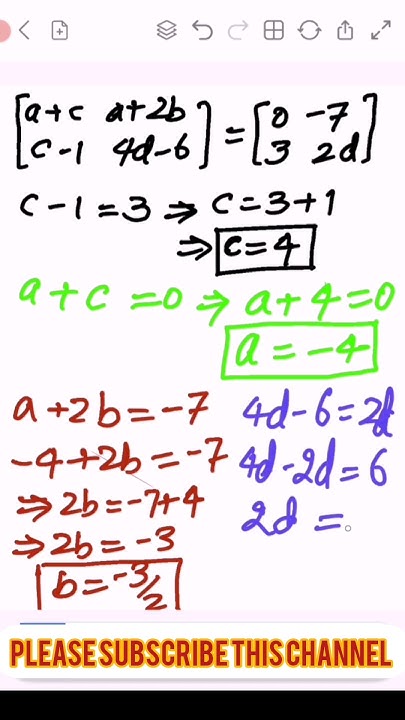 [a+c a+2b] = [0 -7]
[c-1 4d-6] [3 2d]
c-1=3 ⇒ c=3+1
⇒ c=4
a+c=0 ⇒ a+4=0
a=-4
a+2b=-7
-4+2b=-7
⇒ 2b=-7+4
⇒ 2b=-3
b=-3/2
4d-6=2d
4d-2d=6
2d=
PLEASE SUBSCRIBE THIS CHANNEL